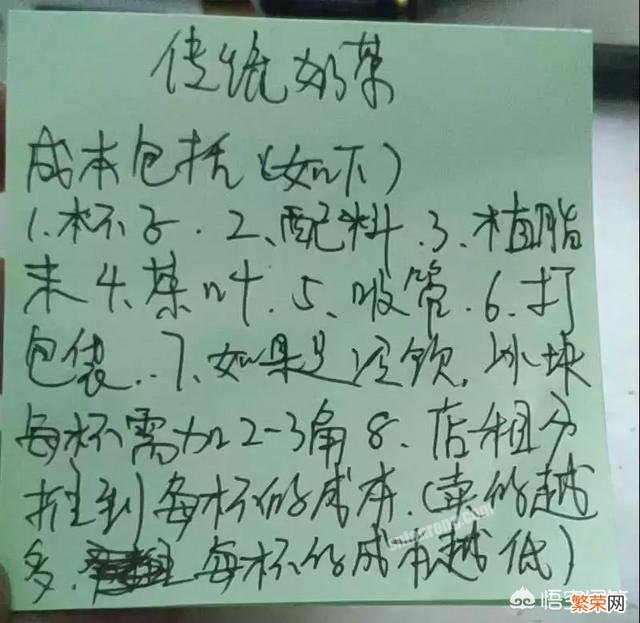 传统奶茶
成本包括(如下)
1.杯子.2、配料.3.植脂
末4、茶叶.5、吸管.6.打
包袋..7、如果是冷饮.冰块
每杯需加2-3角8.店租分
摊到每杯的成本.(卖的越
多.每杯的成本越低)
cnfanrong.com
悟空问答
繁荣网